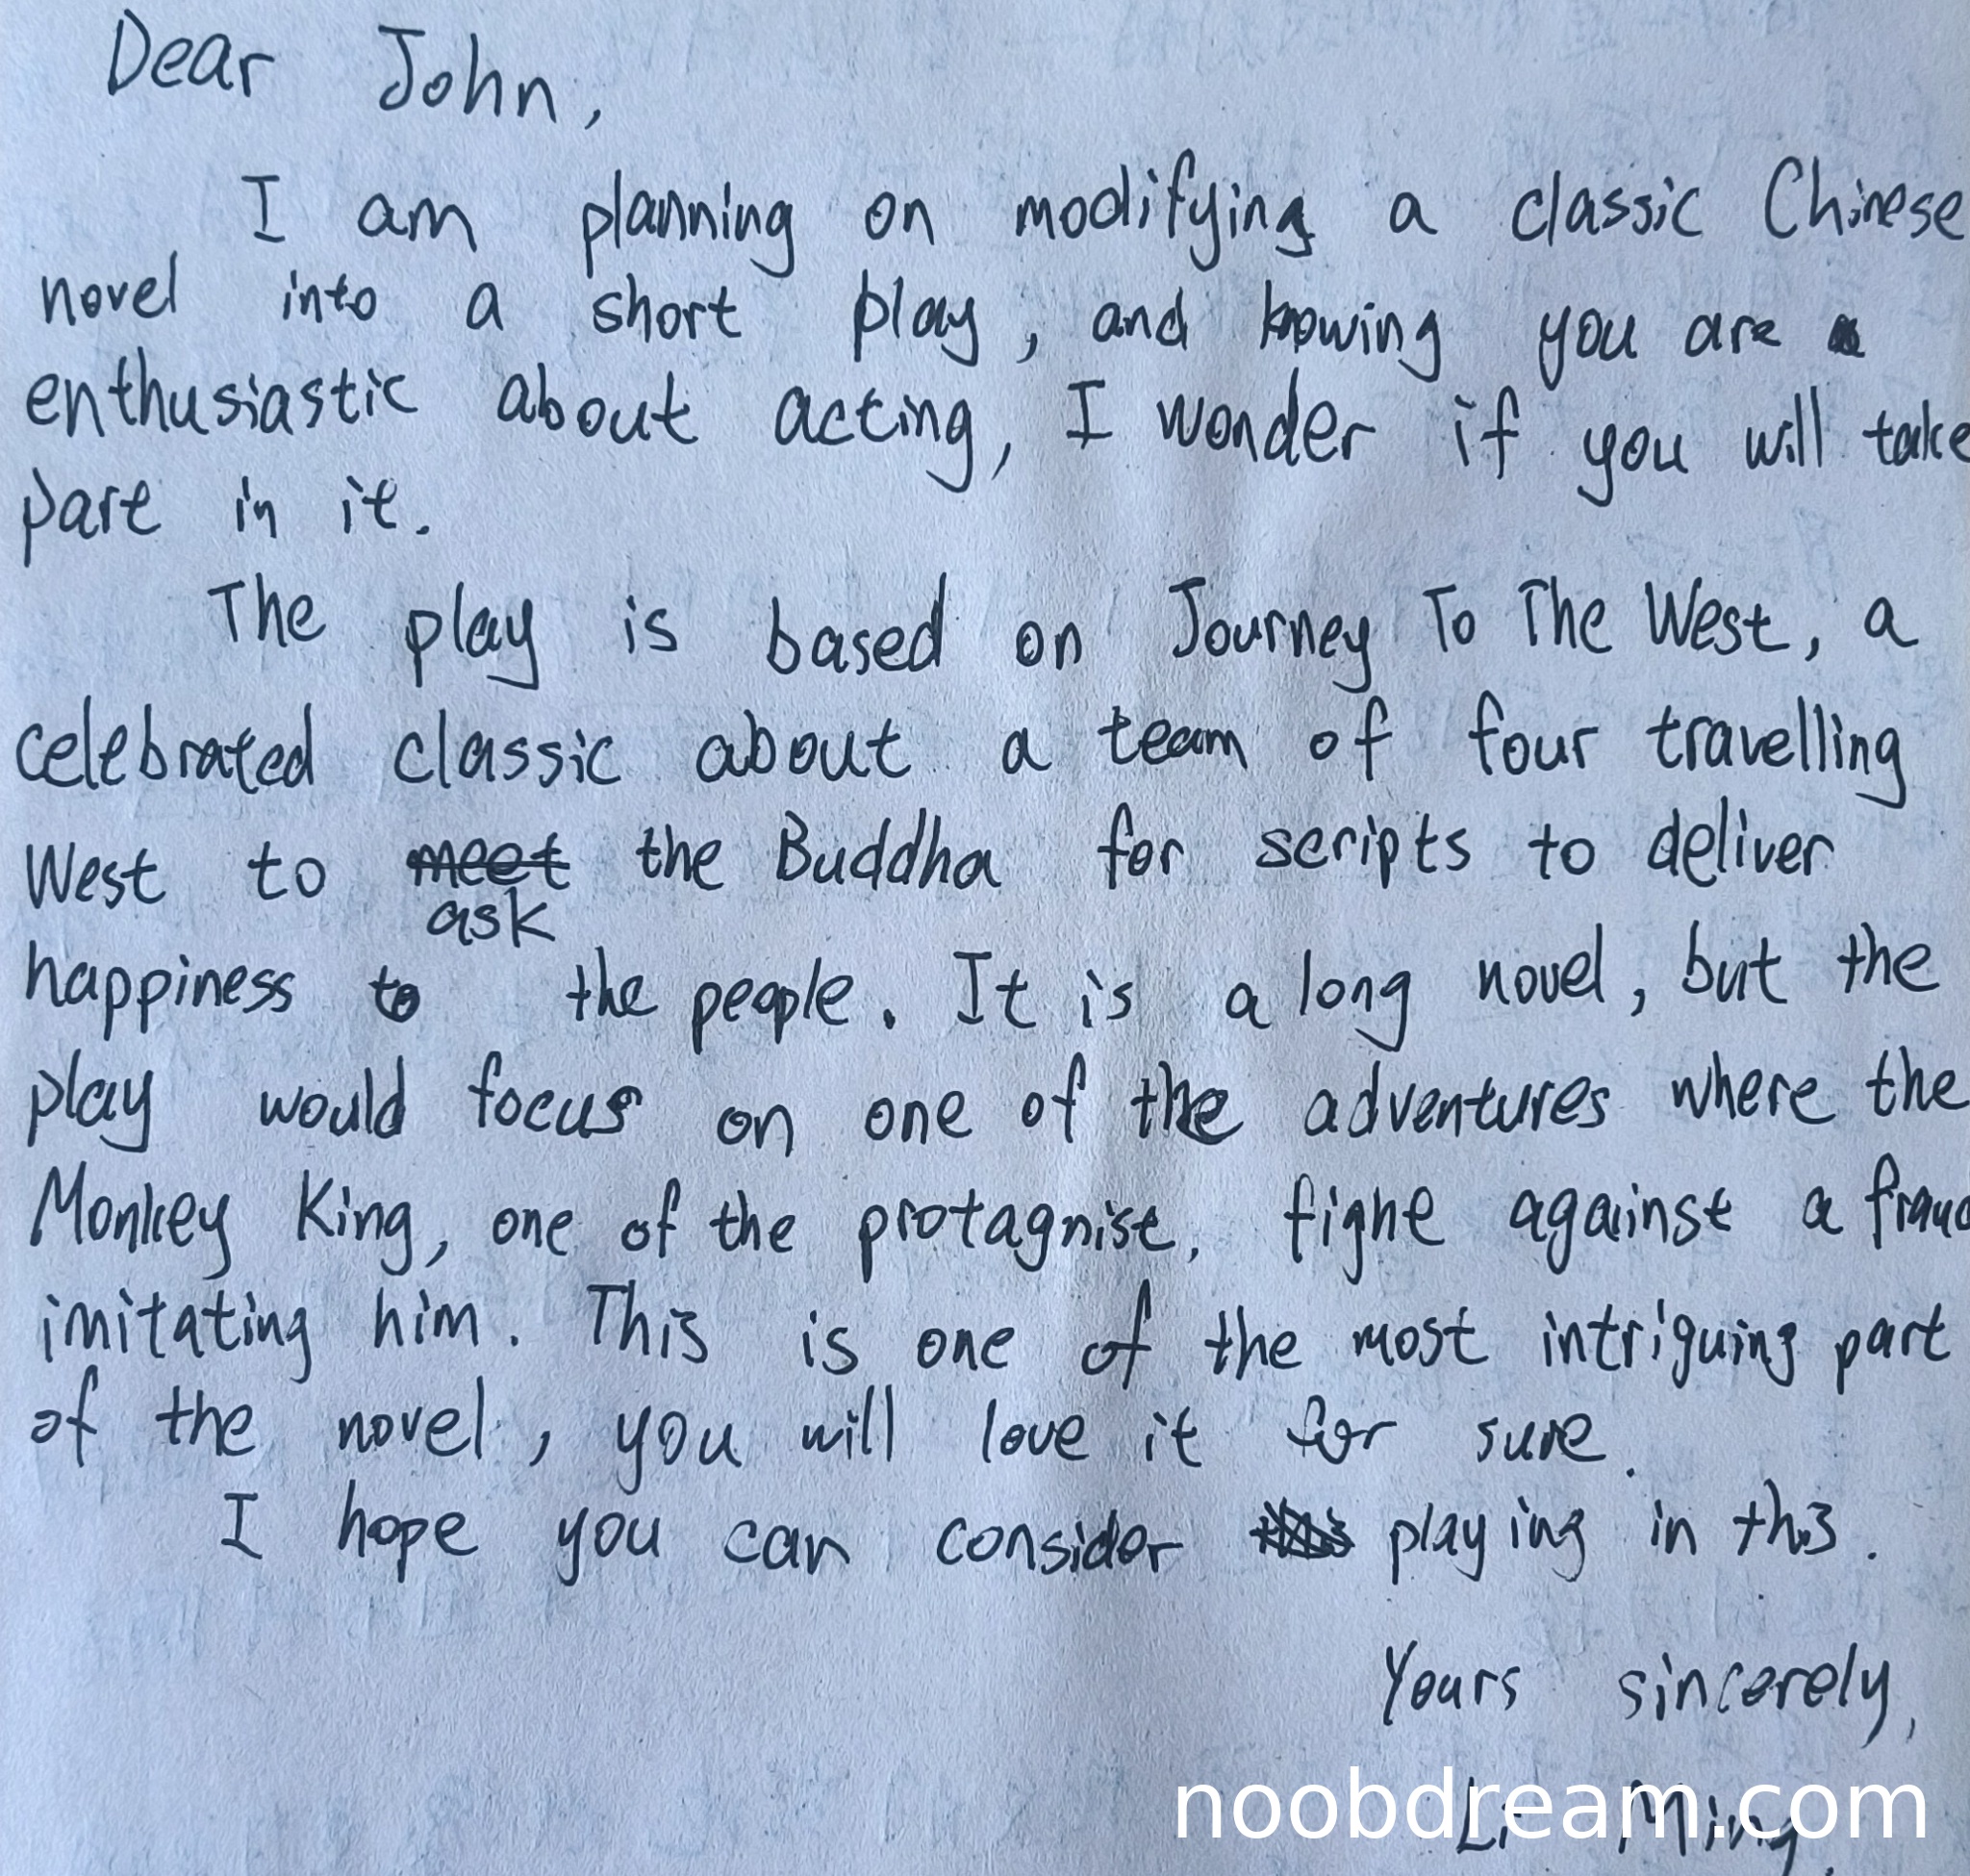 Dear John,
I am planning on modifying a classic Chinese
novel into a short play, and knowing you are
enthusiastic about acting, I wonder if you will take
part in it.
The play is based on Journey To The West, a
celebrated classic about a team of four travelling
West to meet the Buddha for scripts to deliver
ask
happiness to the people. It is a long novel, but the
play would focus on one of the adventures where the
Monkey King, one of the protagnist, fight against a fraud
imitating him. This is one of the most intriguing part
of the novel, you will love it for sure.
I hope you can consider playing in this.
Yours sincerely,
Li Ming
noobdream.com